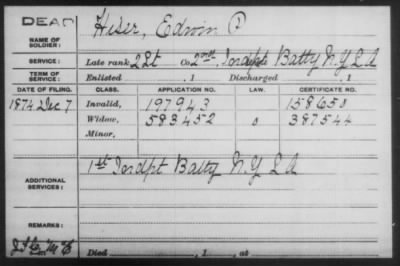 DEAD
Hiser, Edwin P
NAME OF SOLDIER:
SERVICE: Late rank 2 Lt Co 2nd Indpt Batty N.Y. L A
TERM OF SERVICE: Enlisted , 1 Discharged , 1
DATE OF FILING. CLASS. APPLICATION NO. LAW. CERTIFICATE NO.
1874 Dec 7 Invalid, 197943 158650
Widow, 583452 387544
Minor,
1st Indpt Batty N.Y L A
ADDITIONAL SERVICES:
REMARKS:
Died , 1 , at